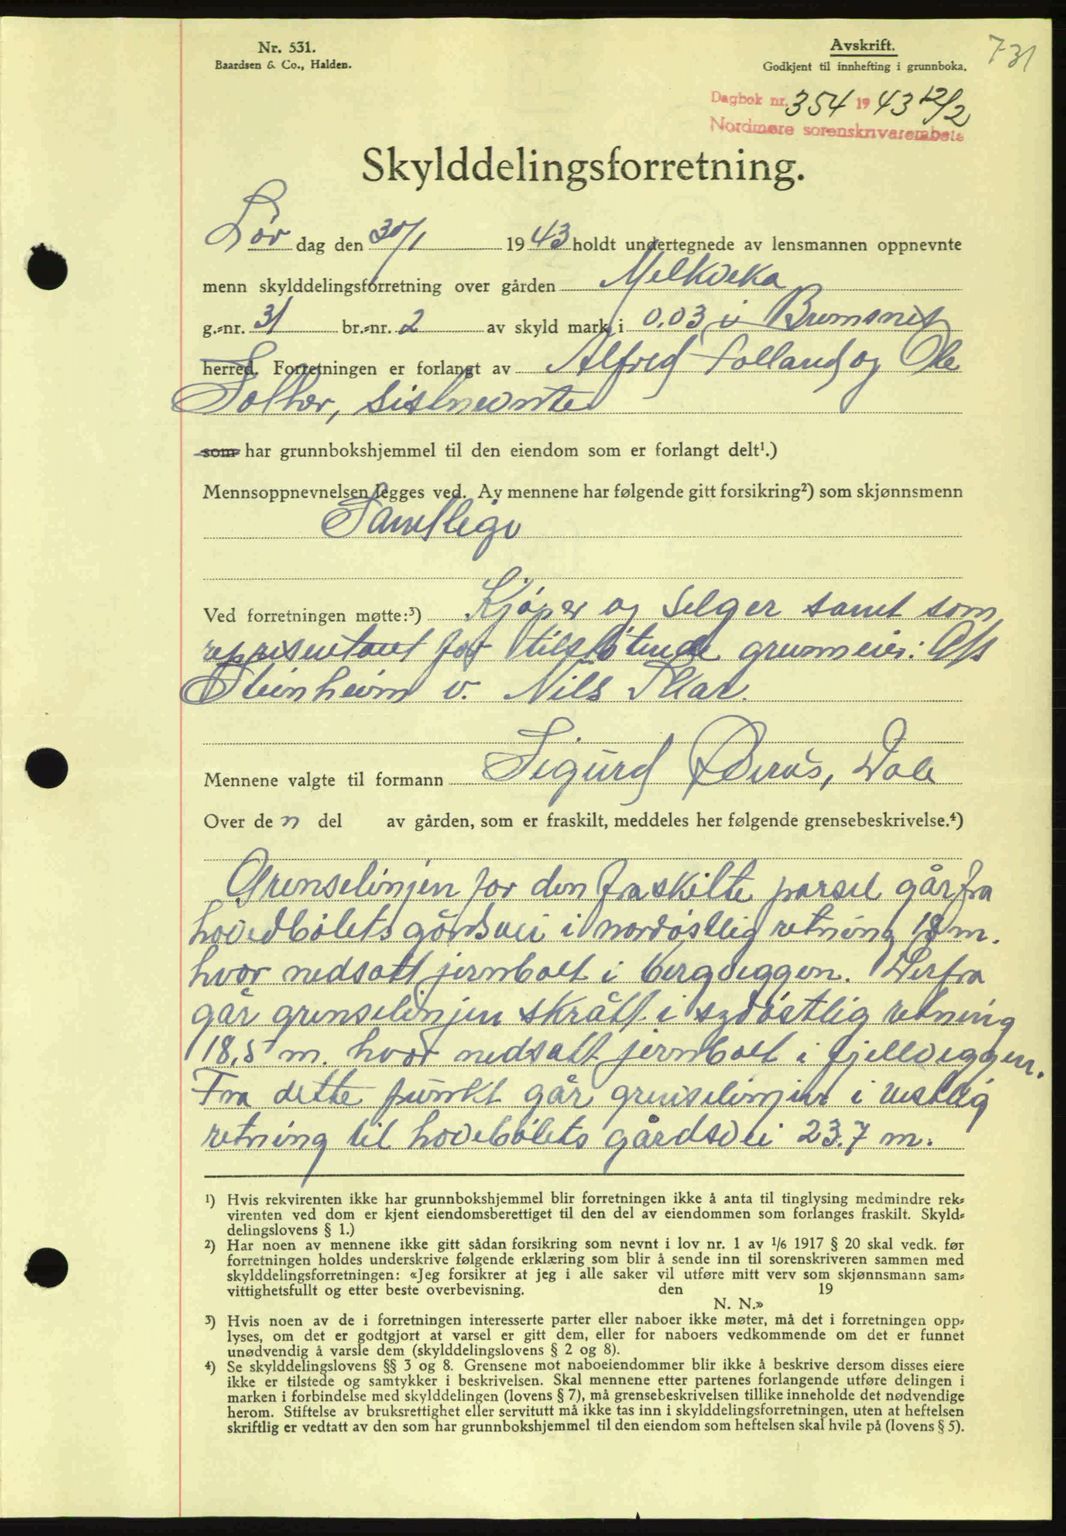 Nr. 531.
Baardsen & Co., Halden.
Avskrift.
Godkjent til innhefting i grunnboka.
731
Dagbok nr. 354 1943 12/2
Nordmøre sorenskriverembete
Skylddelingsforretning.
Lør dag den 30/1 1943 holdt undertegnede av lensmannen oppnevnte
menn skylddelingsforretning over gården Melkvika
g.-nr. 31 br.-nr. 2 av skyld mark 0.03 i Bremsnes
herred. Forretningen er forlangt av Alfred Folland og Ole
Folker, sistnevnte
som har grunnbokshjemmel til den eiendom som er forlangt delt¹.)
Mennsoppnevnelsen legges ved. Av mennene har følgende gitt forsikring²) som skjønnsmenn
Samtlige
Ved forretningen møtte:³) Kjøper og selger samt som
representant for tilstøtende grunneier: A/s
Steinheim v. Nils Skar.
Mennene valgte til formann Sigurd Øverås, Dale
Over de n del av gården, som er fraskilt, meddeles her følgende grensebeskrivelse.⁴)
Grenselinjen for den fraskilte parsel går fra
hovedbølets gårdsvei i nordøstlig retning 18 m.
hvor nedsatt jernbolt i bergveggen. Derfra
går grenselinjen skrått i sydøstlig retning
18,5 m. hvor nedsatt jernbolt i fjellveggen.
Fra dette punkt går grenselinjen i vestlig
retning til hovebølets gårdsvei 23.7 m.
¹) Hvis rekvirenten ikke har grunnbokshjemmel blir forretningen ikke å anta til tinglysing medmindre rek-
virenten ved dom er kjent eiendomsberettiget til den del av eiendommen som forlanges fraskilt. Skyld-
delingslovens § 1.)
²) Har noen av mennene ikke gitt sådan forsikring som nevnt i lov nr. 1 av 1/6 1917 § 20 skal vedk. før
forretningen holdes underskrive følgende erklæring som blir å sende inn til sorenskriveren sammen med
skylddelingsforretningen: «Jeg forsikrer at jeg i alle saker vil utføre mitt verv som skjønnsmann sam-
vittighetsfullt og etter beste overbevisning. den 19
N. N.»
³) Hvis noen av de i forretningen interesserte parter eller naboer ikke møter, må det i forretningen opp-
lyses, om det er godtgjort at varsel er gitt dem, eller for naboers vedkommende om det er funnet
unødvendig å varsle dem (skylddelingslovens § 2 og 8).
⁴) Se skylddelingslovens §§ 3 og 8. Grensene mot naboeiendommer blir ikke å beskrive dersom disses eiere
ikke er tilstede og samtykker i beskrivelsen. Skal mennene etter partenes forlangende utføre delingen i
marken i forbindelse med skylddelingen (lovens § 7), må grensebeskrivelsen tillike inneholde det nødvendige
herom. Stiftelse av bruksrettighet eller servitutt må ikke tas inn i skylddelingsforretningen, uten at heftelsen
skriftlig er vedtatt av den som har grunnbokshjemmel til den eiendom som heftelsen skal hvile på (lovens § 5).